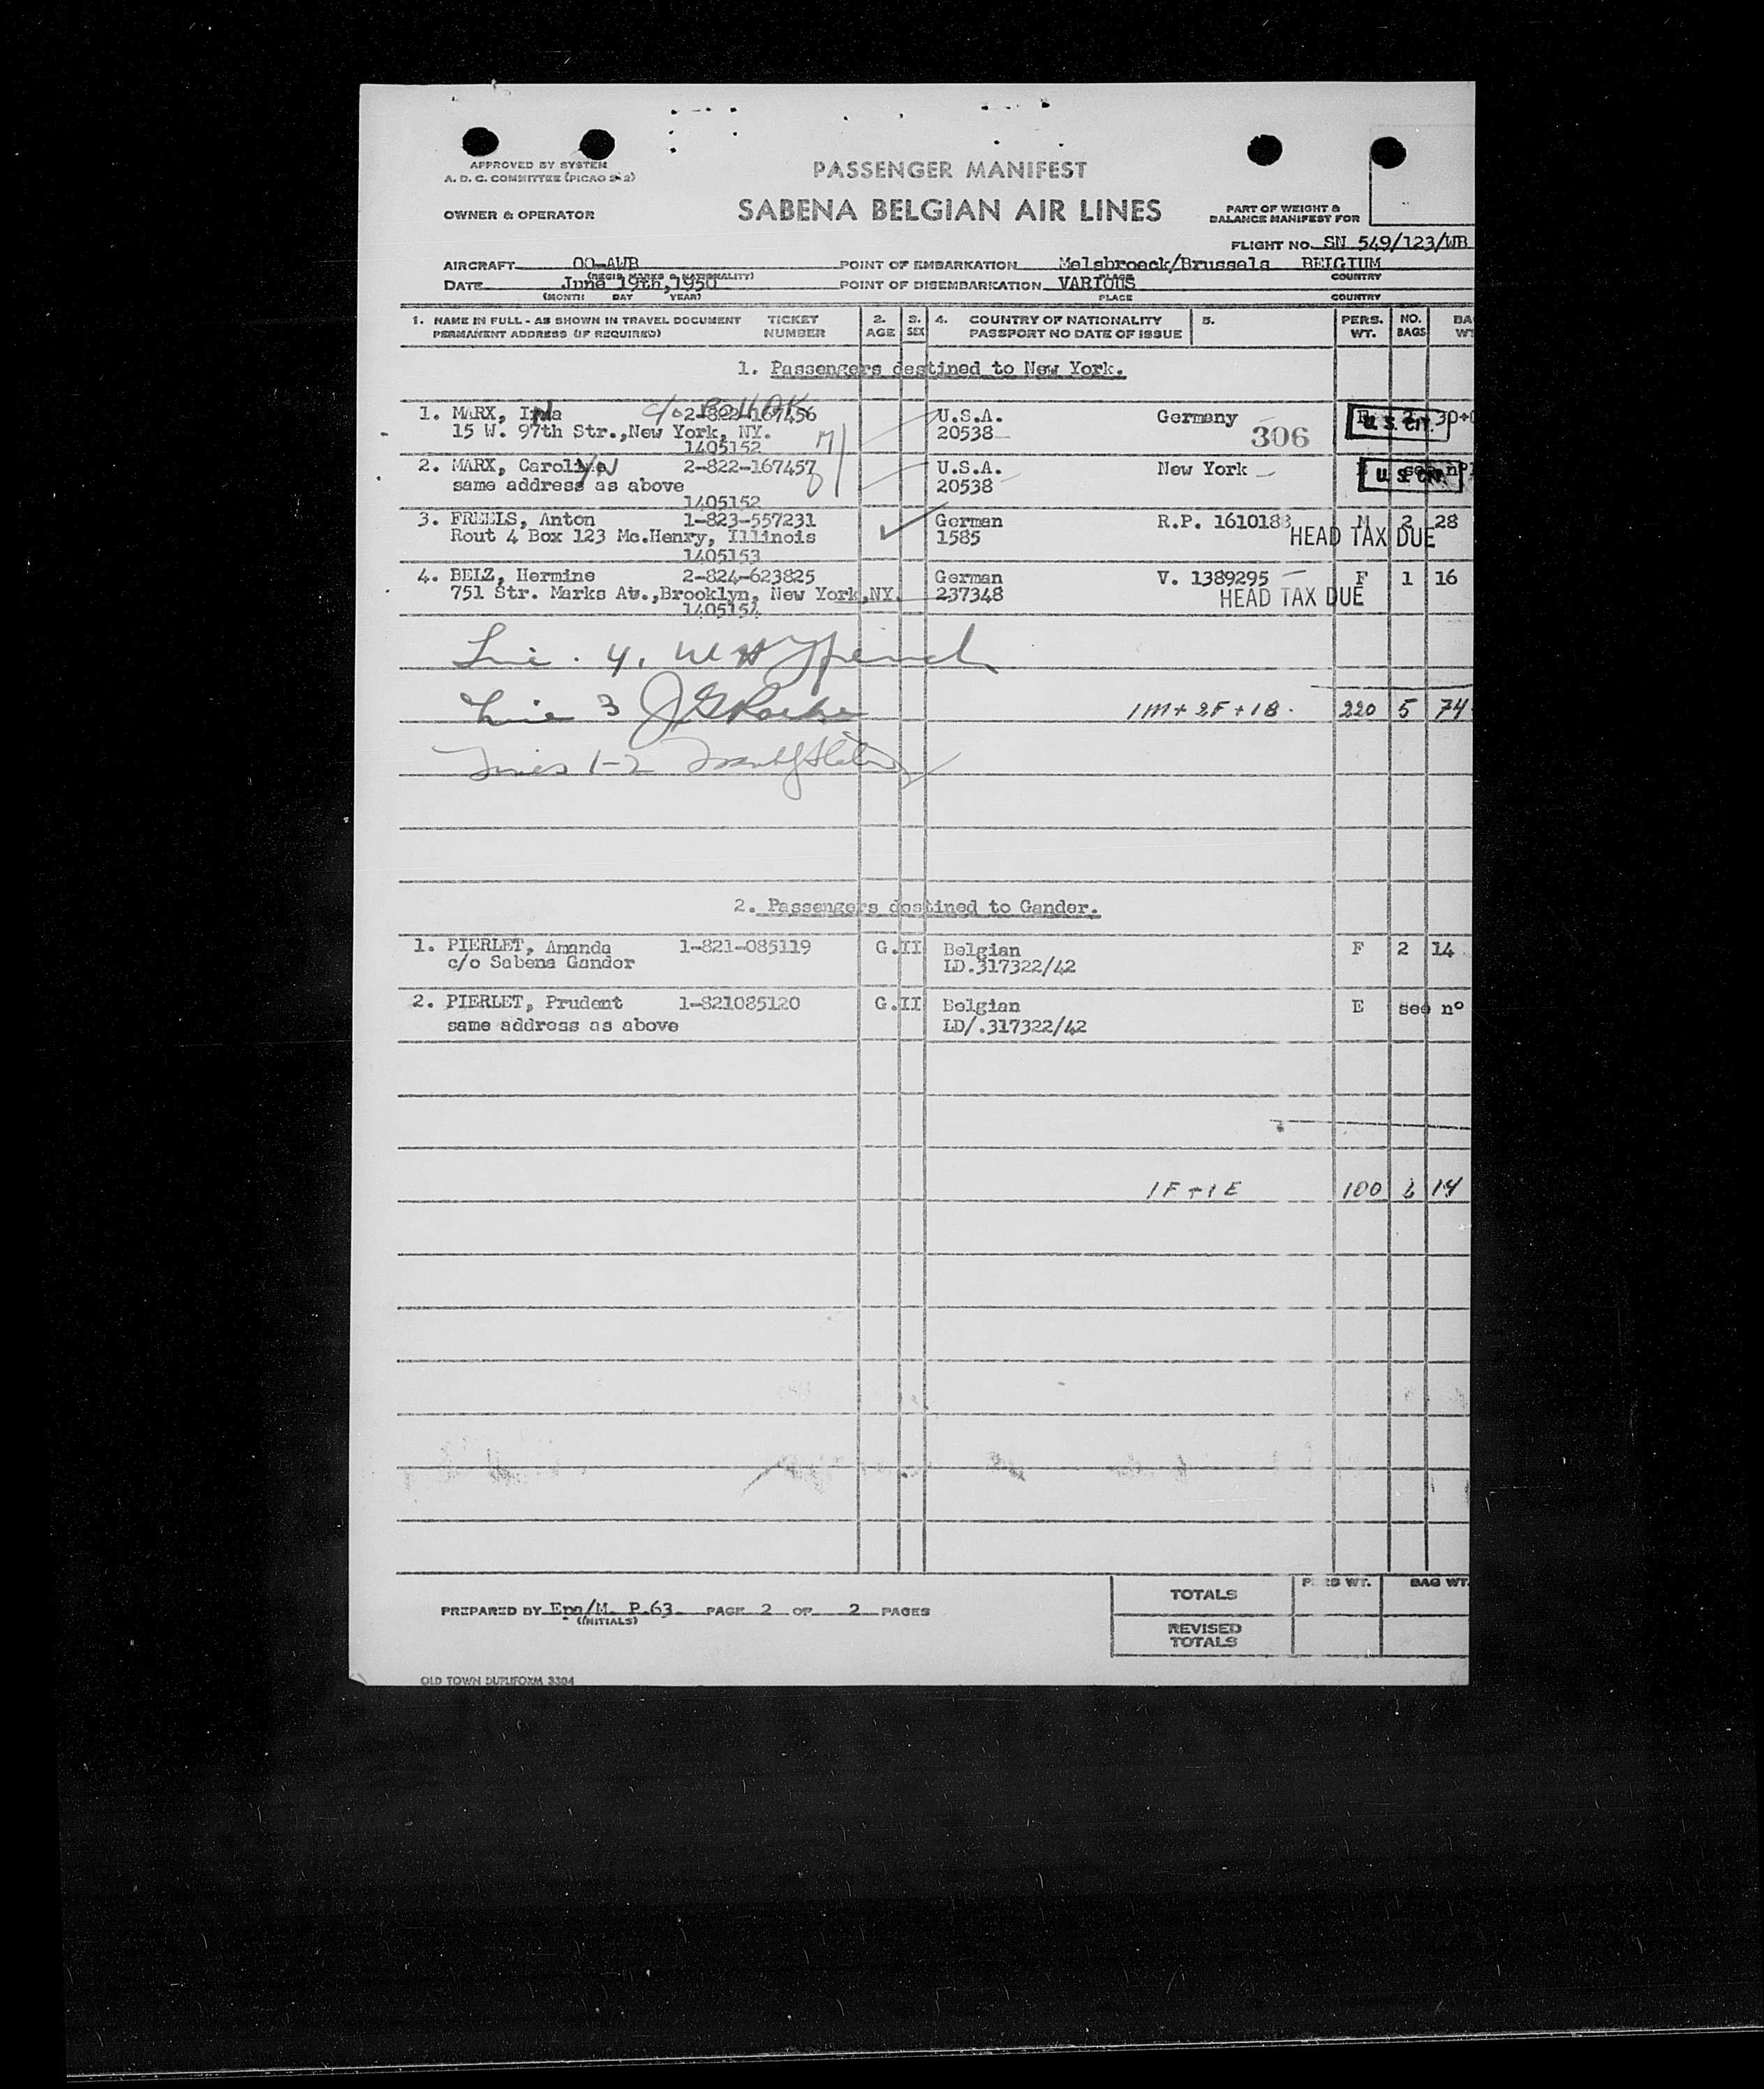 APPROVED BY SYSTEM
A. D. C. COMMITTEE (PICAO S-2)
PASSENGER MANIFEST
OWNER & OPERATOR
SABENA BELGIAN AIR LINES
PART OF WEIGHT &
BALANCE MANIFEST FOR
FLIGHT NO. SN 549/123/WB
AIRCRAFT OO-AWB POINT OF EMBARKATION Melsbroeck/Brussels BELGIUM
(REGIS. MARKS & NATIONALITY) PLACE COUNTRY
DATE June 19th,1950 POINT OF DISEMBARKATION VARIOUS
(MONTH DAY YEAR) PLACE COUNTRY
1. NAME IN FULL - AS SHOWN IN TRAVEL DOCUMENT TICKET 2. 3. 4. COUNTRY OF NATIONALITY 5. PERS. NO. BA
PERMANENT ADDRESS (IF REQUIRED) NUMBER AGE SEX PASSPORT NO DATE OF ISSUE WT. BAGS WT
1. Passengers destined to New York.
1. MARX, c/o 2-822-167456 U.S.A. Germany 306 U.S. CIT. 30+
15 W. 97th Str.,New York, NY. 20538
1405152
2. MARX, 2-822-167457 U.S.A. New York U.S. CIT.
same address as above 20538
1405152
3. FREELS, Anton 1-823-557231 German R.P. 1610183 M 2 28
Rout 4 Box 123 Mc.Henry, Illinois 1585 HEAD TAX DUE
1405153
4. BELZ, Hermine 2-824-623825 German V. 1389295 F 1 16
751 Str. Marks Av.,Brooklyn, New York,NY. 237348 HEAD TAX DUE
1405154
Line 3 1M+ 2F + 1B. 220 5 74
Lines 1-2
2. Passengers destined to Gander.
1. PIERLET, Amanda 1-821-085119 G.II Belgian F 2 14
c/o Sabena Gander LD.317322/42
2. PIERLET, Prudent 1-821085120 G.II Belgian E see nº
same address as above LD/.317322/42
1F + 1E 100 2 14
TOTALS PERS WT. BAG WT.
PREPARED BY Epa/M. P.63 PAGE 2 OF 2 PAGES
(INITIALS)
REVISED
TOTALS
OLD TOWN DUPLIFORM 3304